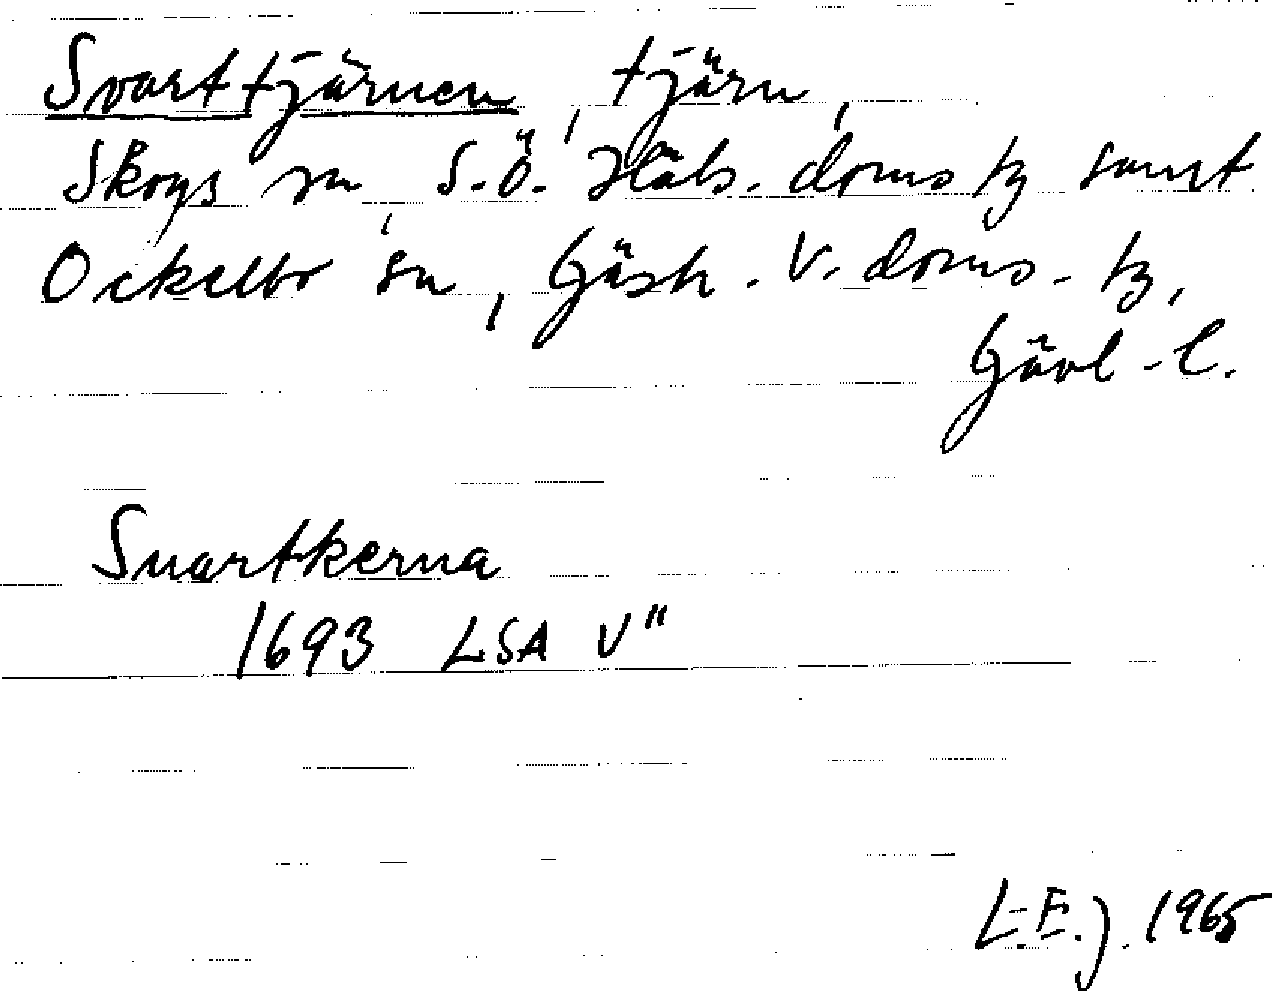 Svarttjärnen, tjärn,
Skogs sn, S.Ö. Häls. doms tg samt
Ockelbo sn, Gästr. V. doms. tg,
Gävl. l.
Suartkerna
1693 LSA V"
L.E.J. 1965